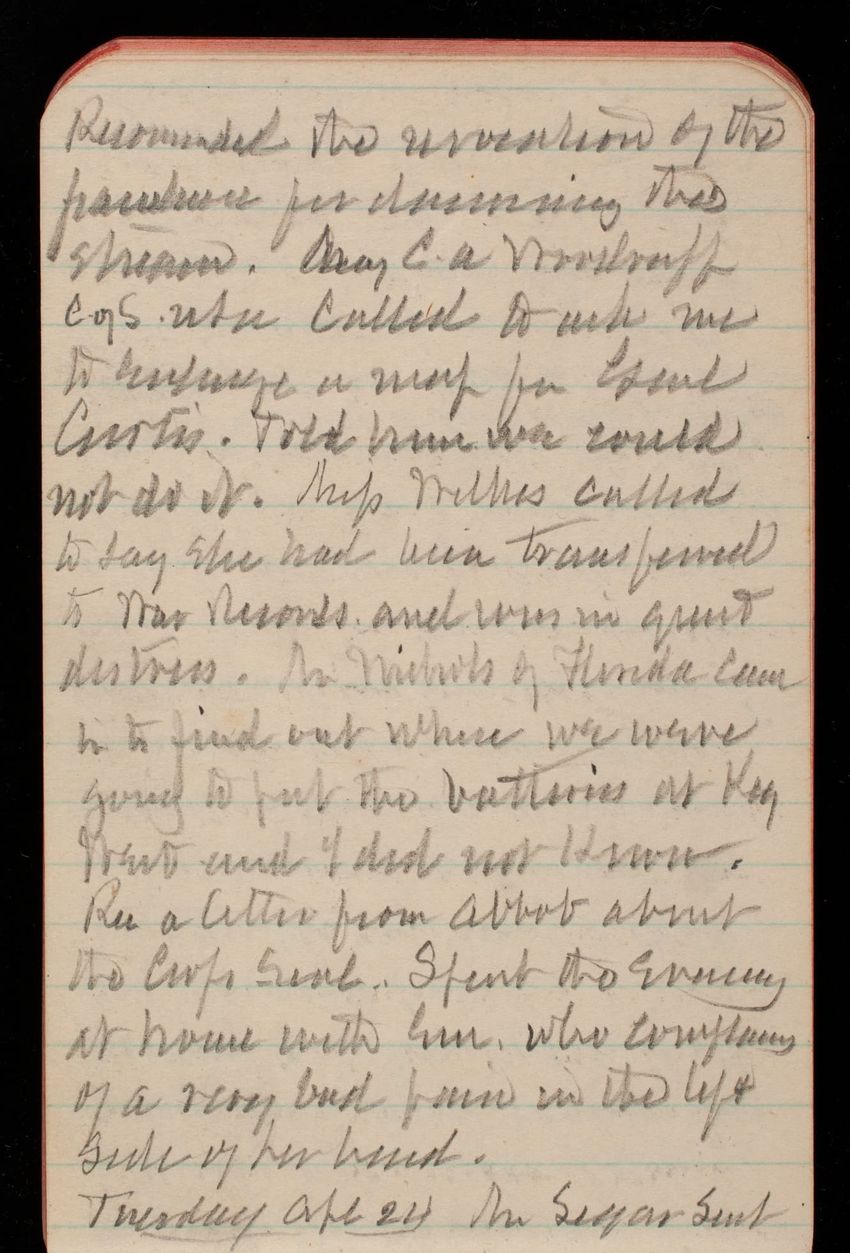 Recommended the revocation of the
for damming the
stream. Maj C. A Woodruff
C of S. USA Called to ask me
to enlarge a map for Genl
Curtis. Told him we could
not do it. Miss Wilkes called
to say She had been transferred
to War Records. and was in great
distress. Mr Nichols of Florida came
in to find out where we were
going to put the batteries at Key
West and I did not Know.
Rec a letter from Abbot about
the Corps Seal. Spent the Evening
at home with Em. who complains
of a very bad pain in the left
side of her head.
Tuesday Apl 24 Mr Segar Sent